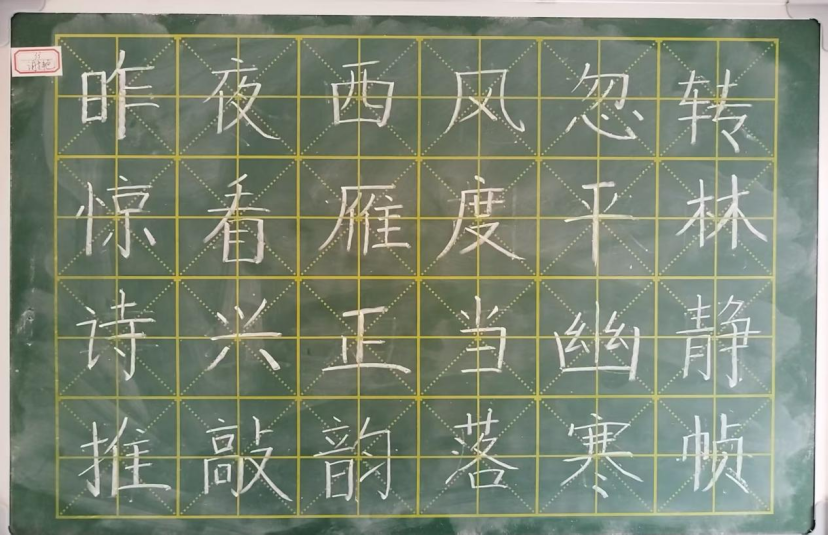 昨夜西风忽转
惊看雁度平林
诗兴正当幽静
推敲韵落寒帧